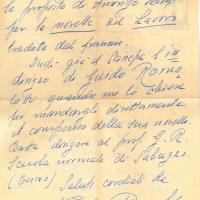 le proposte di
per le novelle del Lavoro
tradotte dal francese.
Diedi già al Canepa l'in-
dirizzo di Guido
quando me lo chiese
per mandargli direttamente
il compenso della sua novella.
Basta dirigere al prof. G. R.
Scuola normale di Saluzzo
(Cuneo) Saluti cordiali da